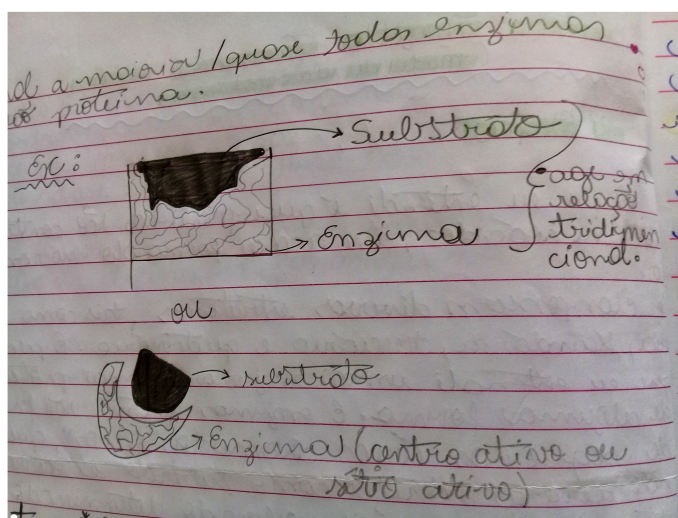 a maioria/quase todas enzimas
proteina.
Ex:
Substrato
Enzima
age em
relação
tridimen
cional.
ou
substrato
Enzima (centro ativo ou
sítio ativo)